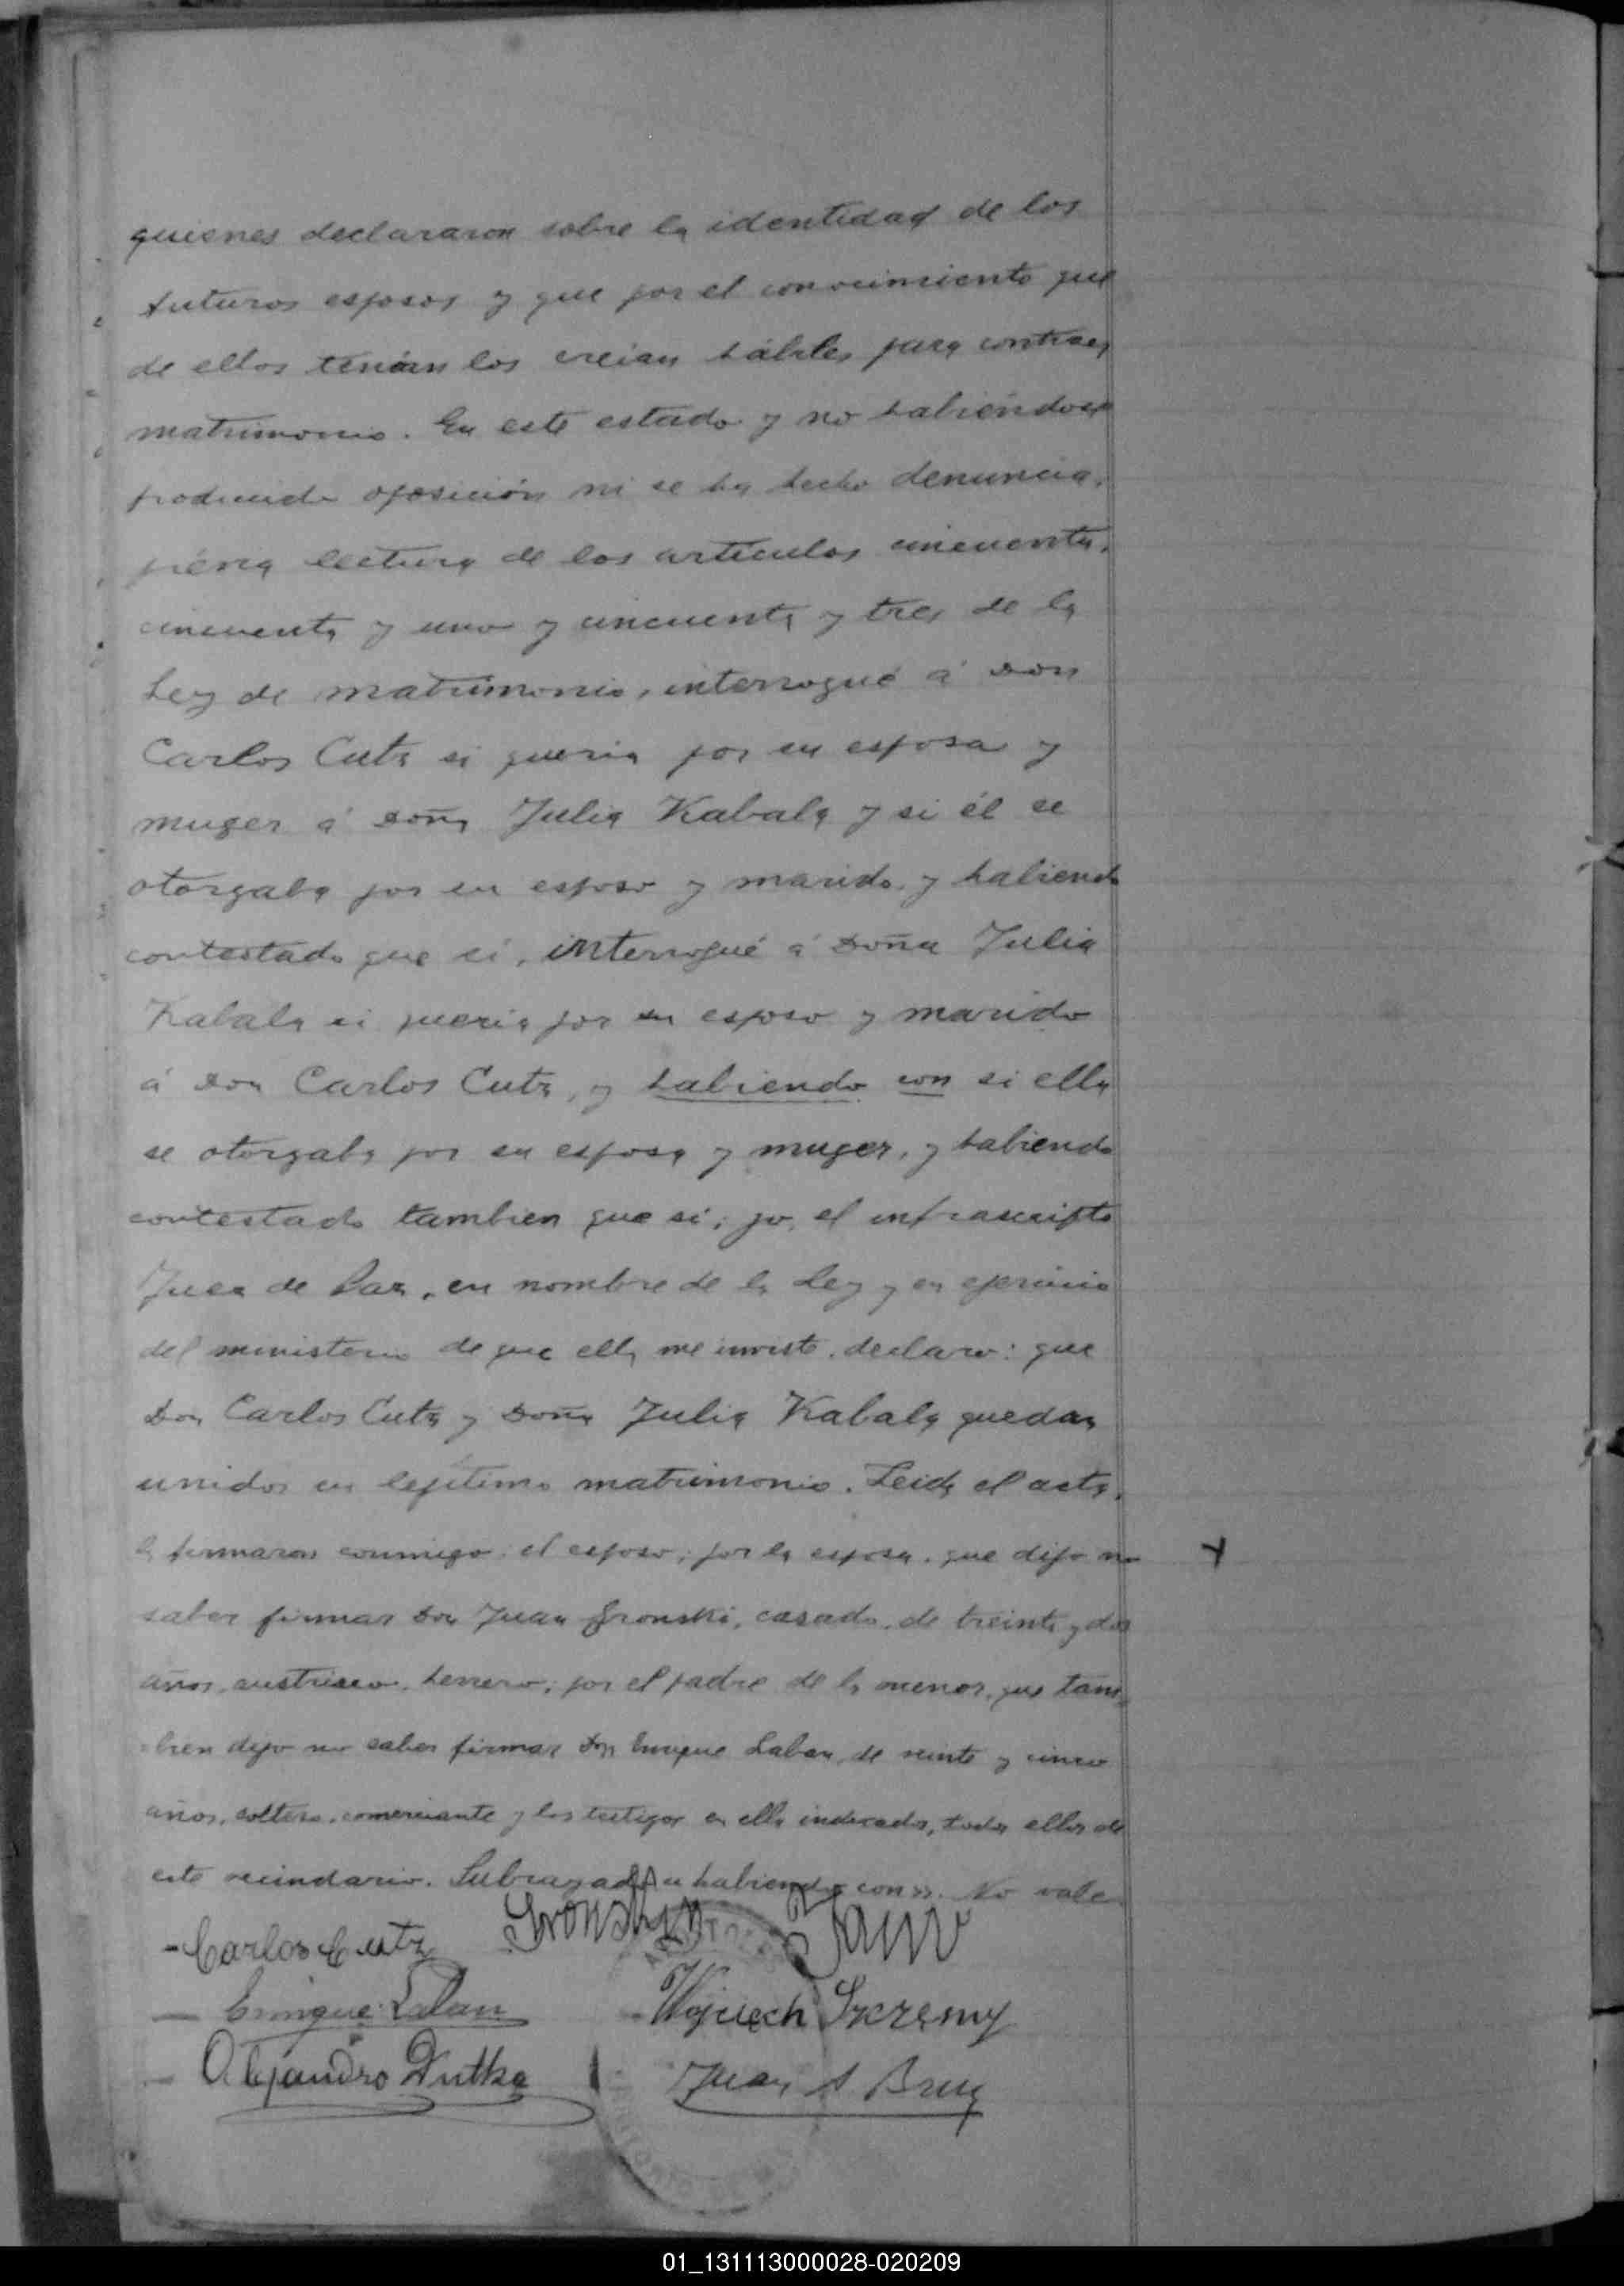 quienes declararon sobre la identidad de los
futuros esposos y que por el conocimiento que
de ellos tenian los creian hábiles para contraer
matrimonio. En este estado y no habiéndose
producido oposición ni se ha hecho denuncia,
prévia lectura de los artículos cincuenta,
cincuenta y uno y cincuenta y tres de la
Ley de matrimonio, interrogué á Don
Carlos Cutz si queria por su esposa y
muger á Doña Julia Kabala y si él se
otorgaba por su esposo y marido, y habiendo
contestado que sí, interrogué á Doña Julia
Kabala si queria por su esposo y marido
á Don Carlos Cutz, y habiendo con si ella
se otorgaba por su esposa y muger, y habiendo
contestado tambien que sí; yo, el infrascripto
Juez de Paz, en nombre de la Ley y en ejercicio
del ministerio de que ella me inviste, declaro: que
Don Carlos Cutz y Doña Julia Kabala quedan
unidos en lejítimo matrimonio. Leida el acta,
la firmaron conmigo: el esposo; por la esposa, que dijo no
saber firmar Don Juan Gronski, casado, de treinta y dos
años, austriaco, herrero; por el padre de la menor, que tam-
bien dijo no saber firmar Don Enrique Laban, de veinte y cinco
años, soltero, comerciante y los testigos en ella indicados, todos ellos de
este vecindario. Subrayado "habiendo con". No vale
Carlos Cutz Gronskyj Jan
Enrique Laban Wojciech
Alejandro Dutka Juan A
01_131113000028-020209